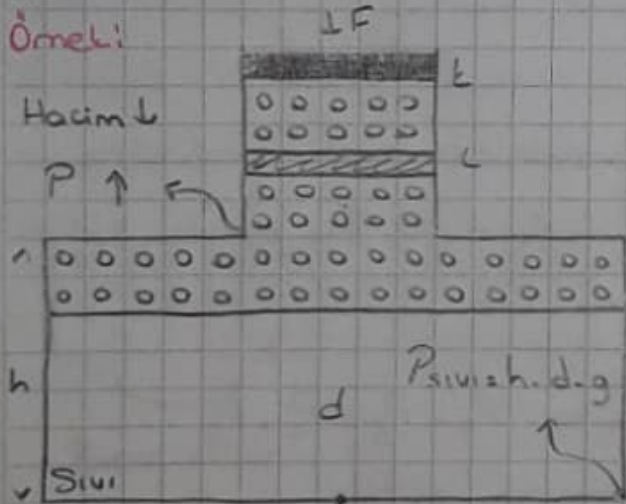 Örnek:
↓F
t
Hacim ↓
L
P ↑
h
Psıvı = h.d.g
d
Sıvı